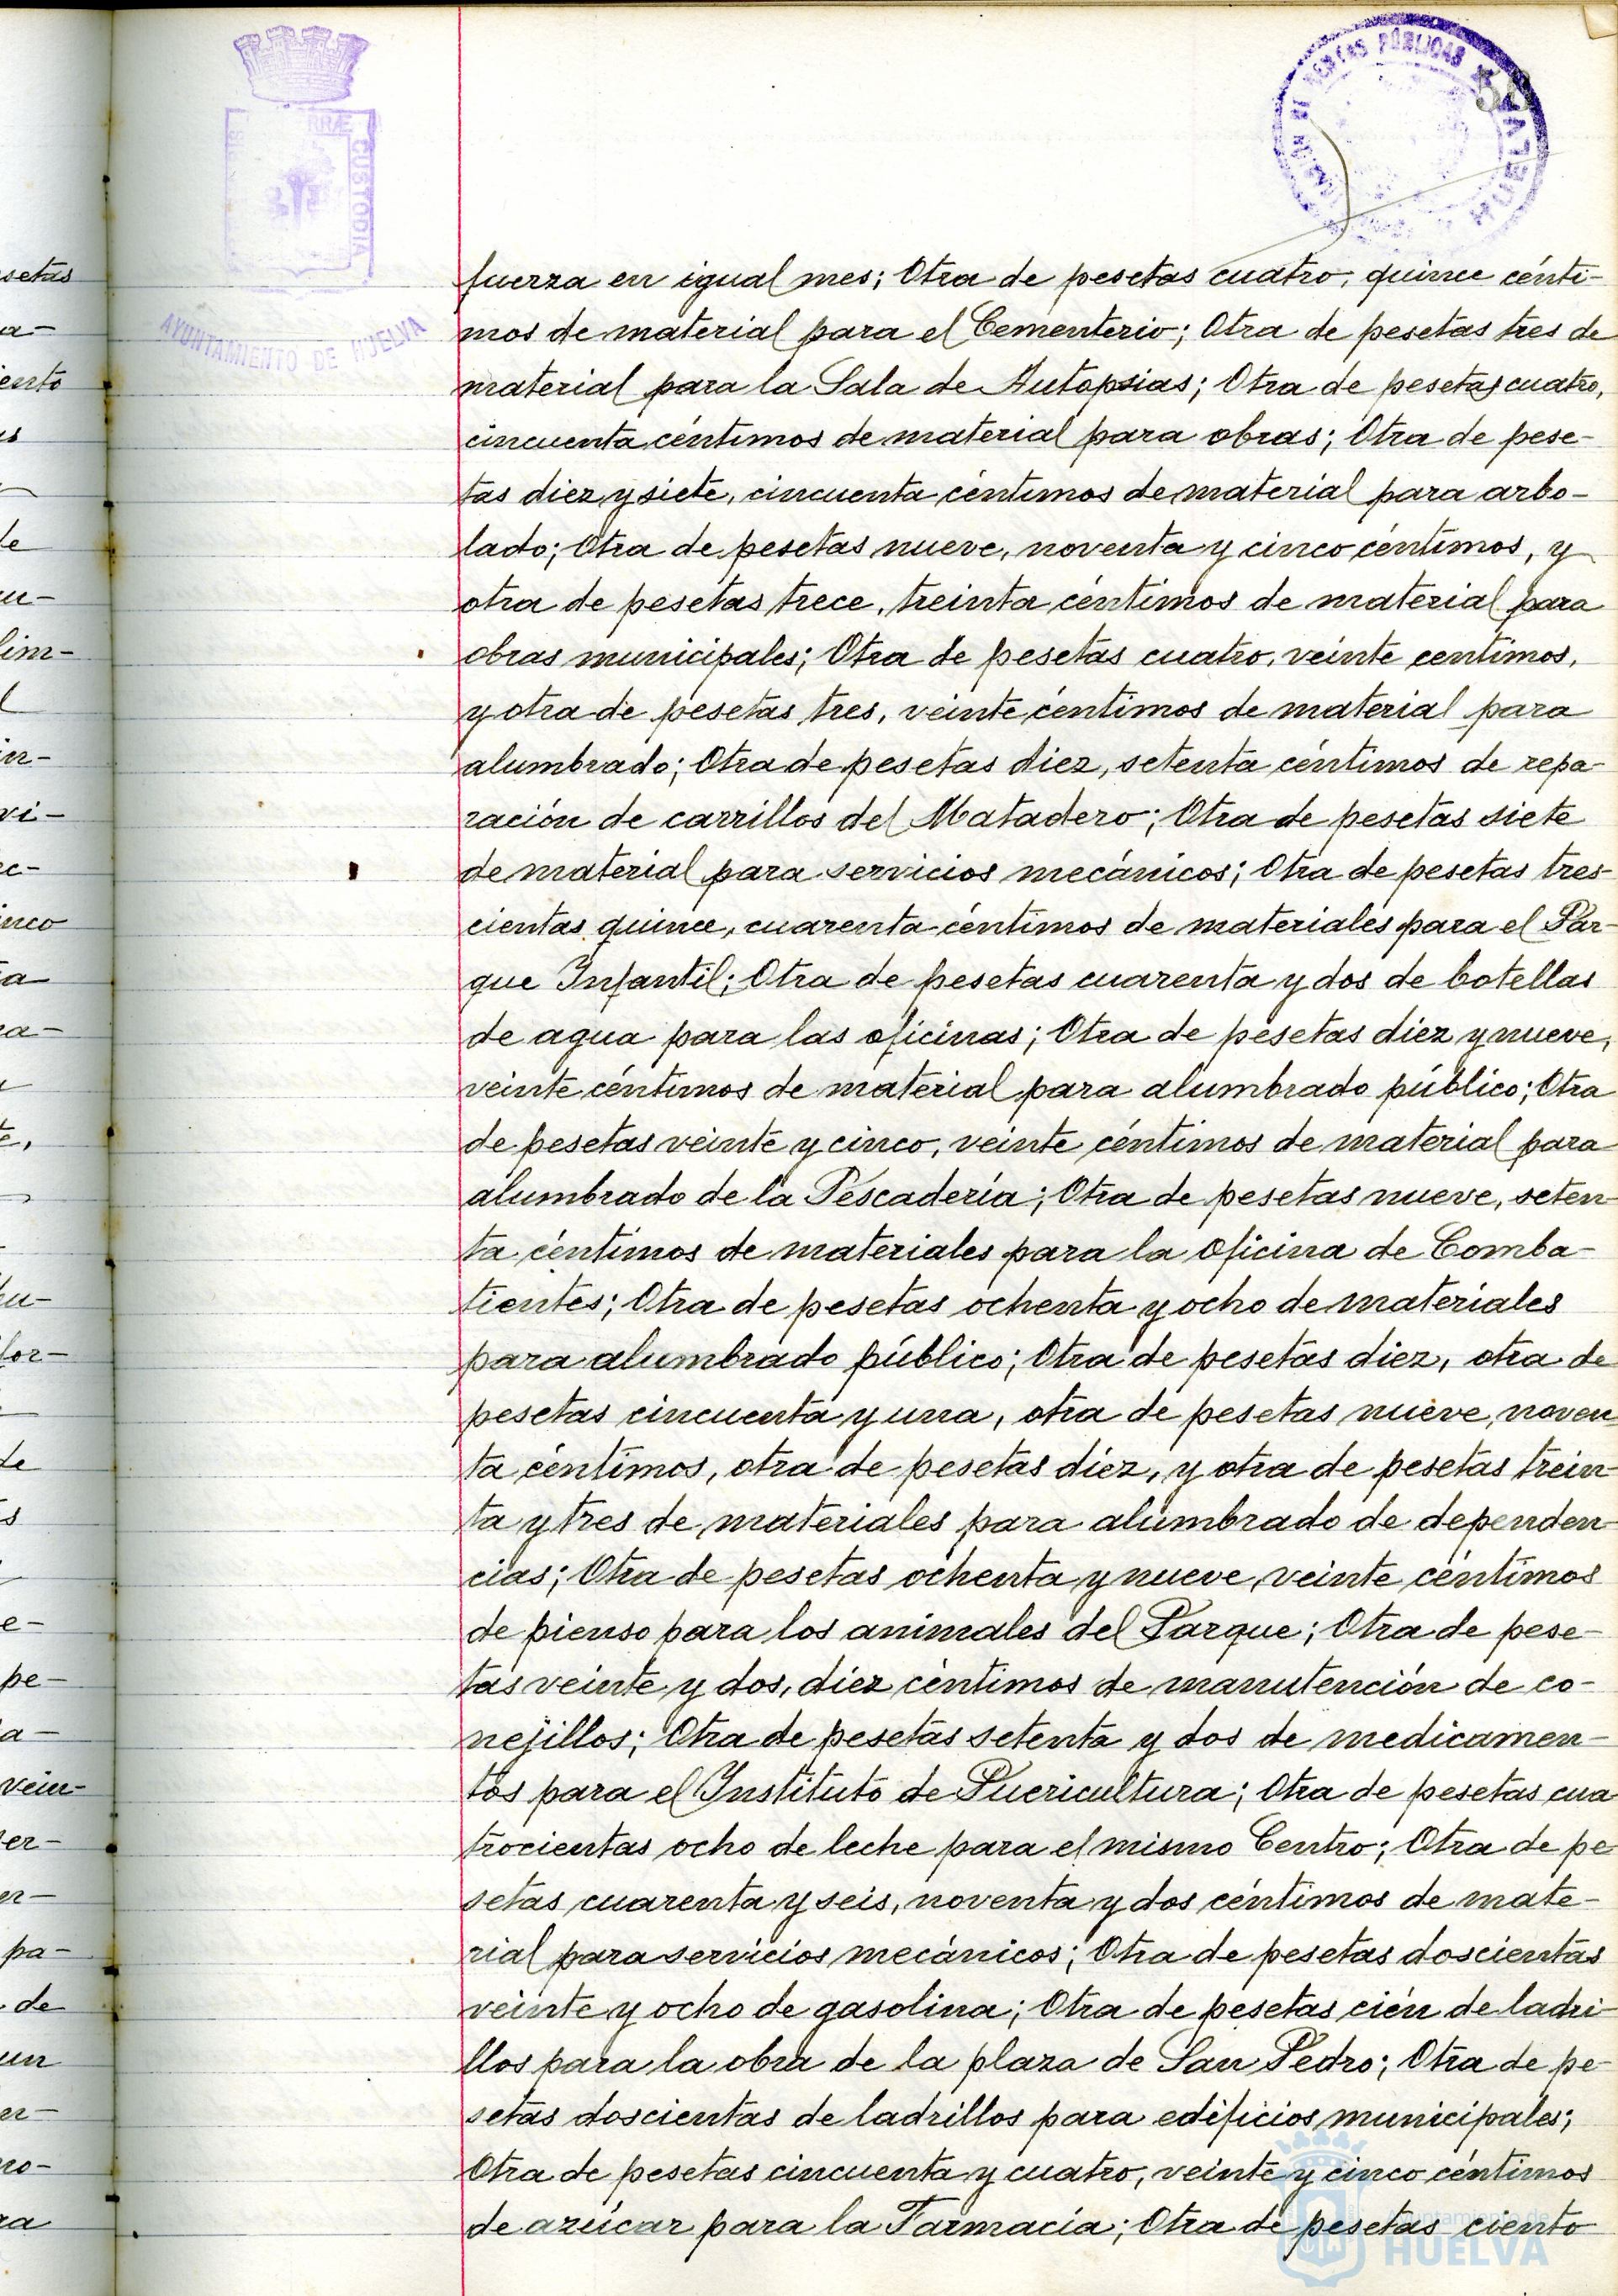 58
RRÆ
CUSTODIA
AYUNTAMIENTO DE HUELVA
PÚBLICAS
HUELVA
fuerza en igual mes; Otra de pesetas cuatro, quince cénti-
mos de material para el Cementerio; Otra de pesetas tres de
material para la Sala de Autopsias; Otra de pesetas cuatro,
cincuenta céntimos de material para obras; Otra de pese-
tas diez y siete, cincuenta céntimos de material para arbo-
lado; Otra de pesetas nueve, noventa y cinco céntimos, y
otra de pesetas trece, treinta céntimos de material para
obras municipales; Otra de pesetas cuatro, veinte centimos,
y otra de pesetas tres, veinte céntimos de material para
alumbrado; Otra de pesetas diez, setenta céntimos de repa-
ración de carrillos del Matadero; Otra de pesetas siete
de material para servicios mecánicos; Otra de pesetas tres-
cientas quince, cuarenta céntimos de materiales para el Par-
que Infantil; Otra de pesetas cuarenta y dos de botellas
de agua para las oficinas; Otra de pesetas diez y nueve,
veinte céntimos de material para alumbrado público; Otra
de pesetas veinte y cinco, veinte céntimos de material para
alumbrado de la Pescadería; Otra de pesetas nueve, seten-
ta céntimos de materiales para la Oficina de Comba-
tientes; Otra de pesetas ochenta y ocho de materiales
para alumbrado público; Otra de pesetas diez, otra de
pesetas cincuenta y una, otra de pesetas nueve, noven-
ta céntimos, otra de pesetas diez, y otra de pesetas trein-
ta y tres de materiales para alumbrado de dependen-
cias; Otra de pesetas ochenta y nueve, veinte céntimos
de pienso para los animales del Parque; Otra de pese-
tas veinte y dos, diez céntimos de manutención de co-
nejillos; Otra de pesetas setenta y dos de medicamen-
tos para el Instituto de Puericultura; Otra de pesetas cua
trocientas ocho de leche para el mismo Centro; Otra de pe
setas cuarenta y seis, noventa y dos céntimos de mate-
rial para servicios mecánicos; Otra de pesetas doscientas
veinte y ocho de gasolina; Otra de pesetas cién de ladri-
llos para la obra de la plaza de San Pedro; Otra de pe-
setas doscientas de ladrillos para edificios municipales;
Otra de pesetas cincuenta y cuatro, veinte y cinco céntimos
de azúcar para la Farmacia; Otra de pesetas ciento
Ayuntamiento de
HUELVA